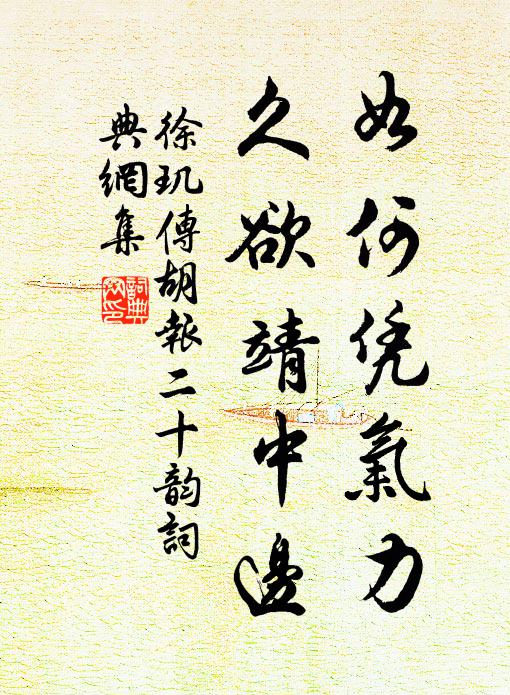 如何凭氣力
久欲靖中邊
徐玑傳胡報二十韵詞
典網集
詞典
网印